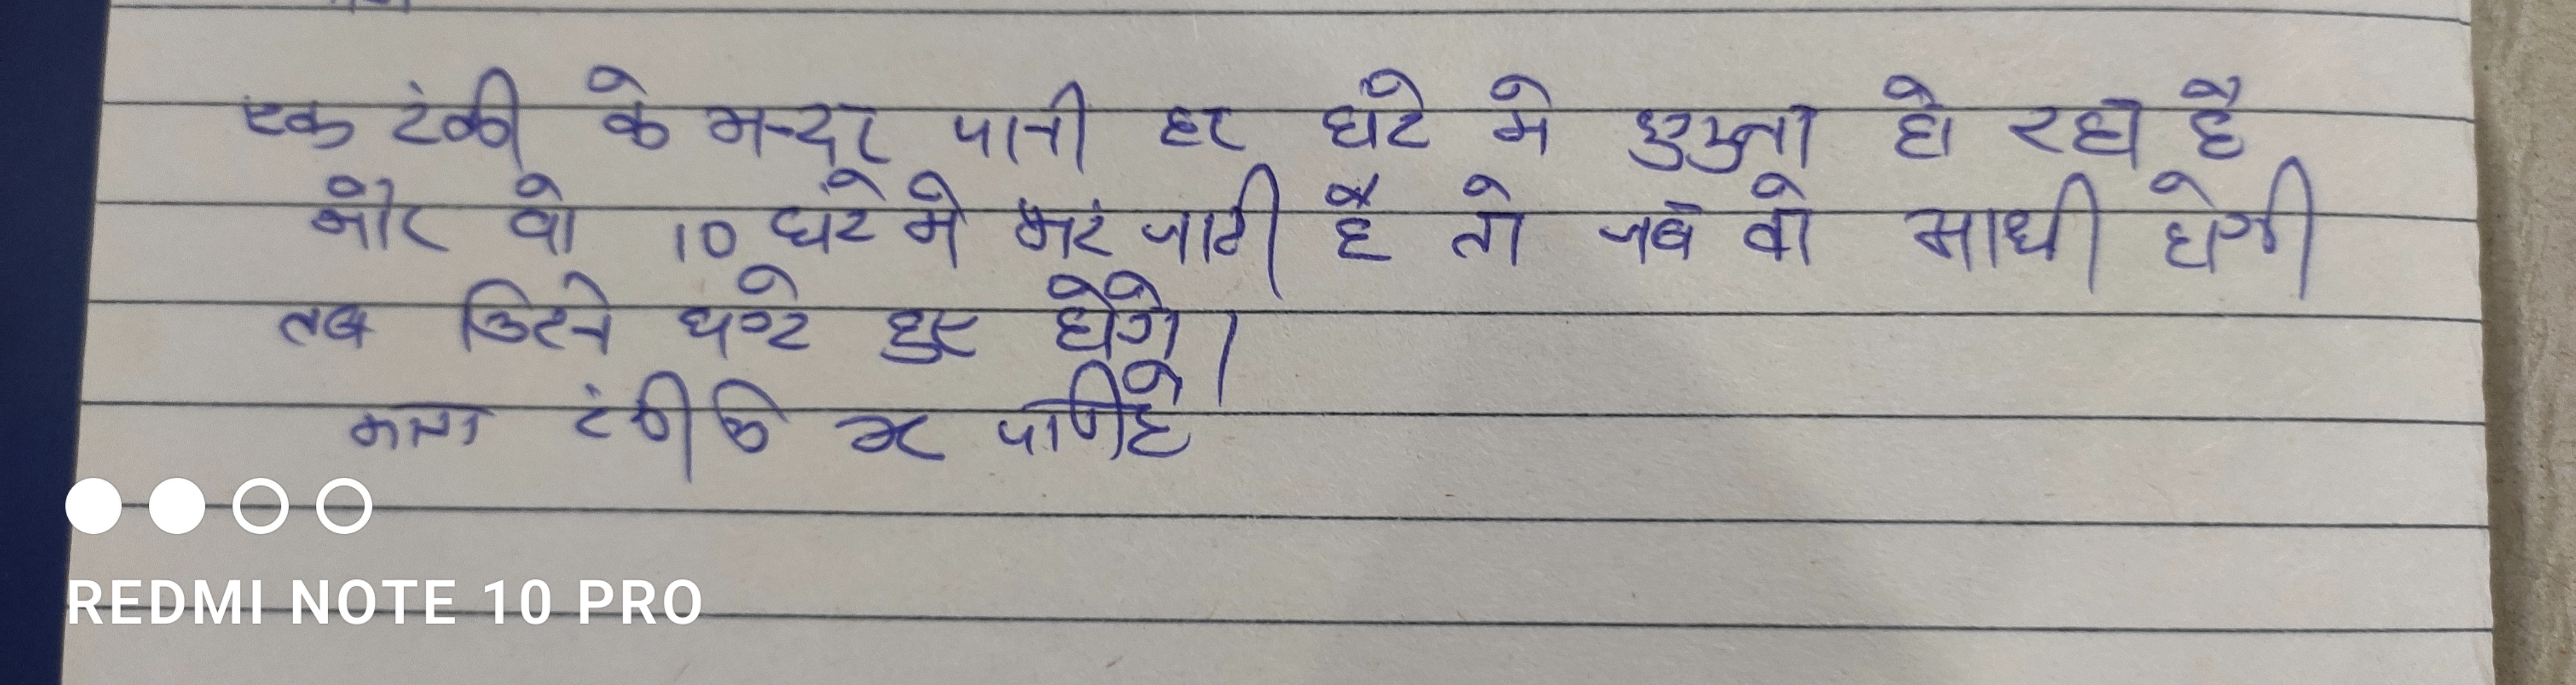 एक टंकी के अन्दर पानी हर घंटे मे दुगुना हो रहा है
और वो 10 घंटे मे भर जाती है तो जब वो आधी होगी
तब कितने घण्टे हुए होंगे।
टंकी
REDMI NOTE 10 PRO